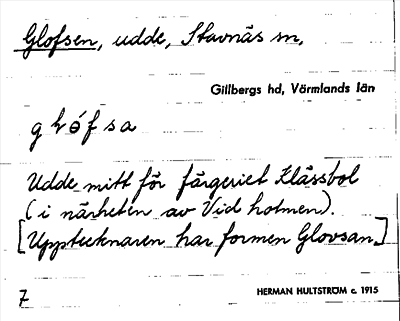 Glofsen, udde, Stavnäs sn,
Gillbergs hd, Värmlands län
Udde mitt för färgeriet Klässbol
(i närheten av Vid holmen).
[Upptecknaren har formen Glovsan.]
7
HERMAN HULTSTRÖM c. 1915